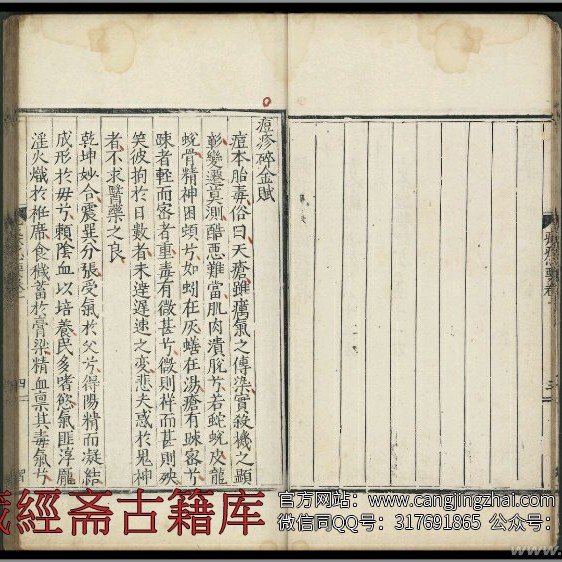 痘疹碎金賦
痘本胎毒俗曰天瘡雖癘氣之傳染實殺機之顯
彰變遷莫測酷惡難當肌肉潰脫兮若蛇蛻皮龍
蛻骨精神困頓兮如蚓在灰蟮在湯瘡有疎密兮
疎者輕而密者重毒有微甚兮微則祥而甚則殃
笑彼拘於日數者未達遲速之变悲夫惑於鬼神
者不求醫藥之良
乾坤妙合震巽分張受氣於父兮得陽精而凝結
成形於母兮賴陰血以培養民多嗜慾氣匪淳龐
淫火熾於袵席食穢蓄於膏梁精血禀其毒氣兮
四
三
藏經斋古籍库
官方网站：www.cangjingzhai.com
微信同QQ号：317691865 公众号：
www.